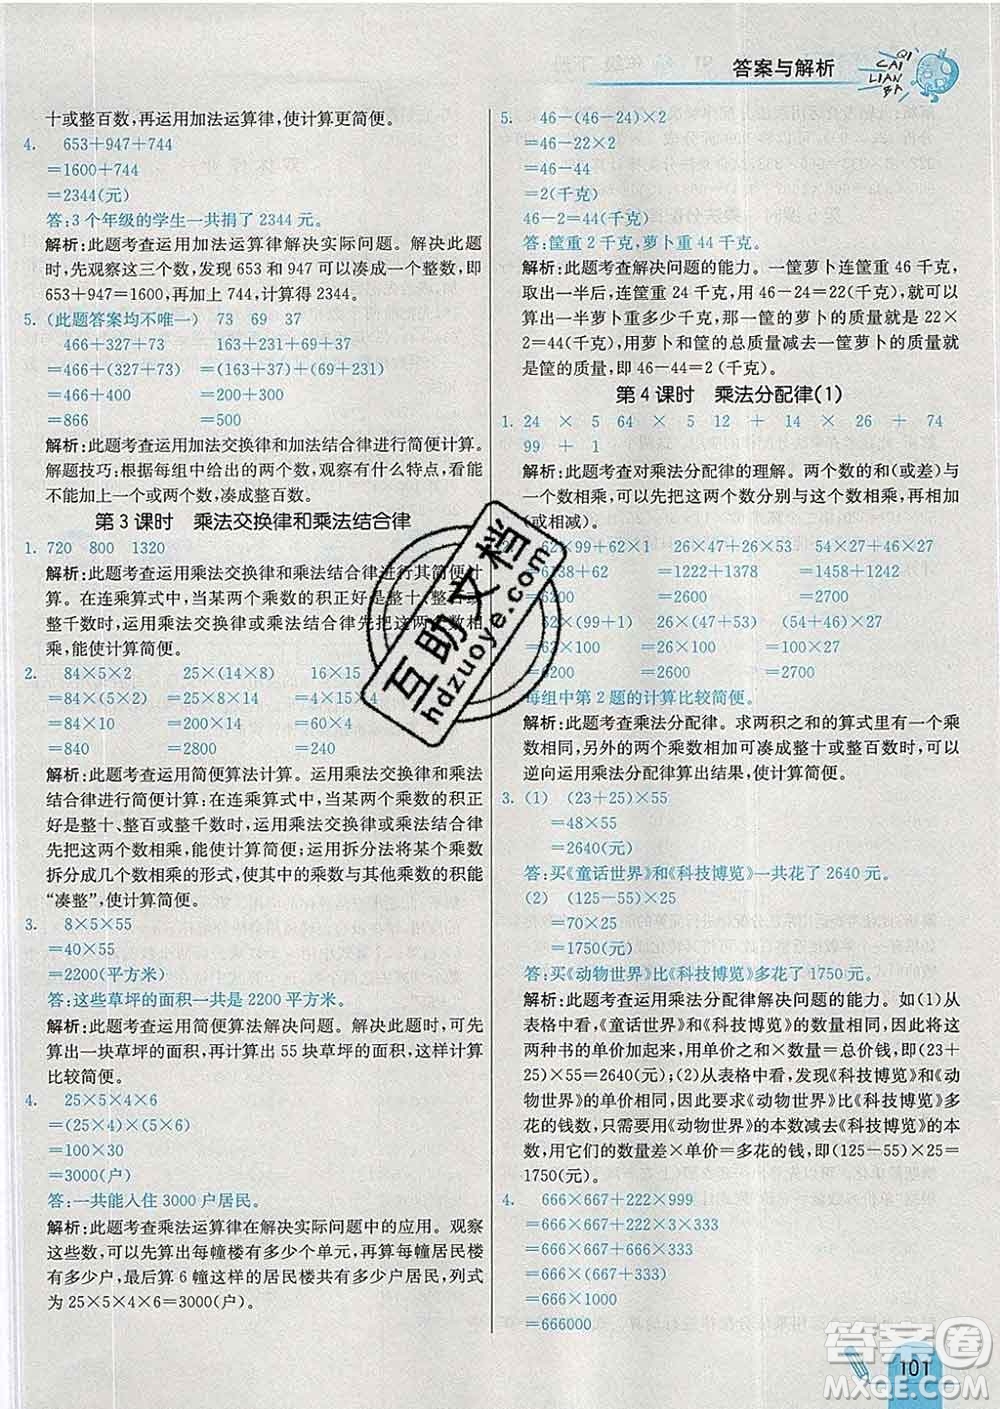 答案与解析
QI CAI LIAN BA
十或整百数，再运用加法运算律，使计算更简便。
4. 653+947+744
=1600+744
=2344(元)
答：3个年级的学生一共捐了2344元。
解析：此题考查运用加法运算律解决实际问题。解决此题
时，先观察这三个数，发现653和947可以凑成一个整数，即
653+947=1600，再加上744，计算得2344。
5. (此题答案均不唯一) 73 69 37
466+327+73 163+231+69+37
=466+(327+73) =(163+37)+(231+69)
=466+400 =200+300
=866 =500
解析：此题考查运用加法交换律和加法结合律进行简便计算。
解题技巧：根据每组中给出的两个数，观察有什么特点，看能
不能加上一个或两个数，凑成整百数。
第3课时 乘法交换律和乘法结合律
1. 720 800 1320
解析：此题考查运用乘法交换律和乘法结合律进行其简便计
算。在连乘算式中，当某两个乘数的积正好是整十、整百或
整千数时，运用乘法交换律或乘法结合律先把这两个数相
乘，能使计算简便。
2. 84×5×2 25×(14×8) 16×15
=84×(5×2) =(25×8)×14 =4×(4×15)
=84×10 =200×14 =60×4
=840 =2800 =240
解析：此题考查运用简便算法计算。运用乘法交换律和乘法
结合律进行简便计算：在连乘算式中，当某两个乘数的积正
好是整十、整百或整千数时，运用乘法交换律或乘法结合律
先把这两个数相乘，能使计算简便；运用拆分法将某个乘数
拆分成几个数相乘的形式，使其与其他乘数的积能
“凑整”，使计算简便。
3. 8×5×55
=40×55
=2200(平方米)
答：这些草坪的面积一共是2200平方米。
解析：此题考查运用简便算法解决问题。解决此题时，可先
算出一块草坪的面积，再计算出55块草坪的面积，这样计算
比较简便。
4. 25×5×4×6
=(25×4)×(5×6)
=100×30
=3000(户)
答：一共能入住3000户居民。
解析：此题考查乘法运算律在解决实际问题中的应用。观察
这些数，可以先算出每幢楼有多少个单元，再算每幢居民楼
有多少户，最后算6幢这样的居民楼共有多少户居民，列式
为25×5×4×6=3000(户)。
5. 46-(46-24)×2
=46-22×2
=46-44
=2(千克)
46-2=44(千克)
答：筐重2千克，萝卜重44千克。
解析：此题考查解决问题的能力。一筐萝卜连筐重46千克，
取出一半后，连筐重24千克，用46-24=22(千克)，就可以
算出一半萝卜重多少千克，那么一筐的萝卜的质量就是22×
2=44(千克)，用萝卜和筐的总质量减去一筐萝卜的质量就
是筐的质量，即46-44=2(千克)。
第4课时 乘法分配律(1)
1. 24 × 5 64 × 5 12 + 14 × 26 + 74
99 + 1
解析：此题考查对乘法分配律的理解。两个数的和(或差)与
一个数相乘，可以先把这两个数分别与这个数相乘，再相加
(或相减)。
62×99+62×1 26×47+26×53 54×26+46×27
=6138+62 =1222+1378 =1458+1242
=6200 =2600 =2700
62×(99+1) 26×(47+53) (54+46)×27
=62×100 =26×100 =100×27
=6200 =2600 =2700
每组中第2题的计算比较简便。
解析：此题考查乘法分配律。求两积之和的算式里有一个乘
数相同，另外的两个乘数相加可凑成整十或整百数时，可以
逆向运用乘法分配律算出结果，使计算简便。
3. (1) (23+25)×55
=48×55
=2640(元)
答：买《童话世界》和《科技博览》一共花了2640元。
(2) (125-55)×25
=70×25
=1750(元)
答：买《动物世界》比《科技博览》多花了1750元。
解析：此题考查运用乘法分配律解决问题的能力。如(1)从
表格中看，《童话世界》与《科技博览》的数量相同，可以将这
两种书的单价加起来，用单价之和×数量=总价钱，即(23+
25)×55=2640(元)；(2)从表格中看，发现《科技博览》和《动
物世界》的单价相同，要求《动物世界》比《科技博览》多花
了的钱数，只需要用《动物世界》的本数减去《科技博览》的本
数，用它们的数量差×单价=多花的钱，即(125-55)×25=
1750(元)。
4. 666×667+222×999
=666×667+222×3×333
=666×667+666×333
=666×(667+333)
=666×1000
=666000
互助文档
hdzuoye.com
答案圈
MXQE.COM
101